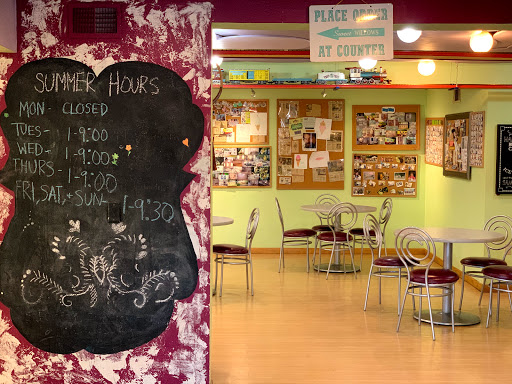 SUMMER HOURS
MON- CLOSED
TUES- 1-9:00
WED- 1-9:00
THURS- 1-9:00
FRI, SAT, + SUN- 1-9:30
PLACE ORDER
AT COUNTER